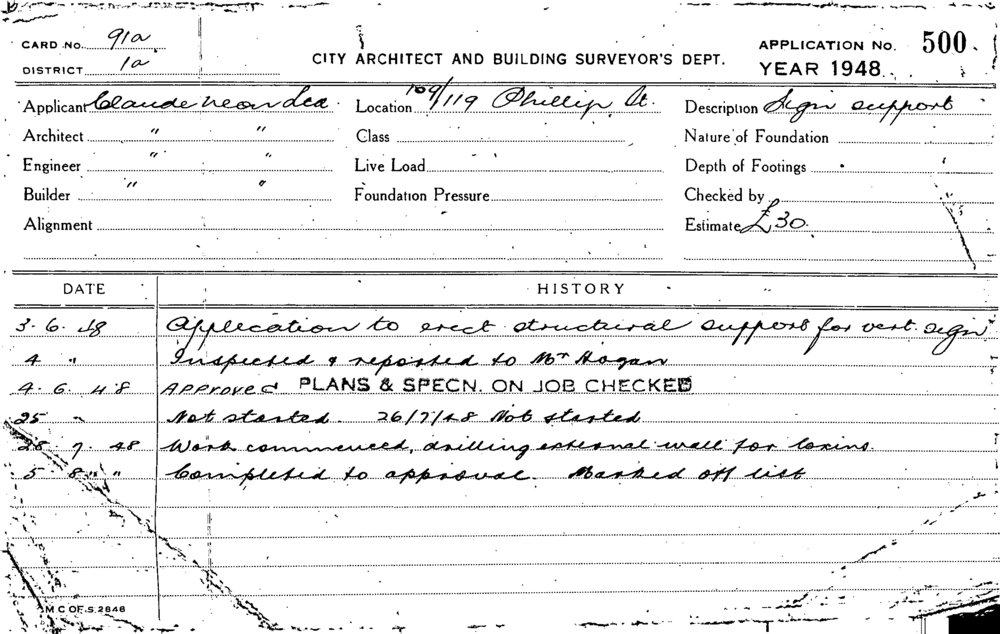 CARD No. 91a
DISTRICT 1a
CITY ARCHITECT AND BUILDING SURVEYOR'S DEPT.
APPLICATION No. 500.
YEAR 1948
Applicant Claude Neon Ltd. Location 109/119 Phillip St. Description Sign support
Architect " " Class Nature of Foundation
Engineer " " Live Load Depth of Footings
Builder " " Foundation Pressure Checked by
Alignment Estimate £30.
DATE HISTORY
3. 6. 48 Application to erect structural support for vert. sign
4 " Inspected & reported to Mr Hogan
4. 6. 48 APPROVED PLANS & SPECN. ON JOB CHECKED
25 " Not started. 26/7/48 Not started
28 7. 48 Work commenced, drilling external wall for loxins.
5 8 " " Completed to approval. Marked off list
M C OF S. 2848